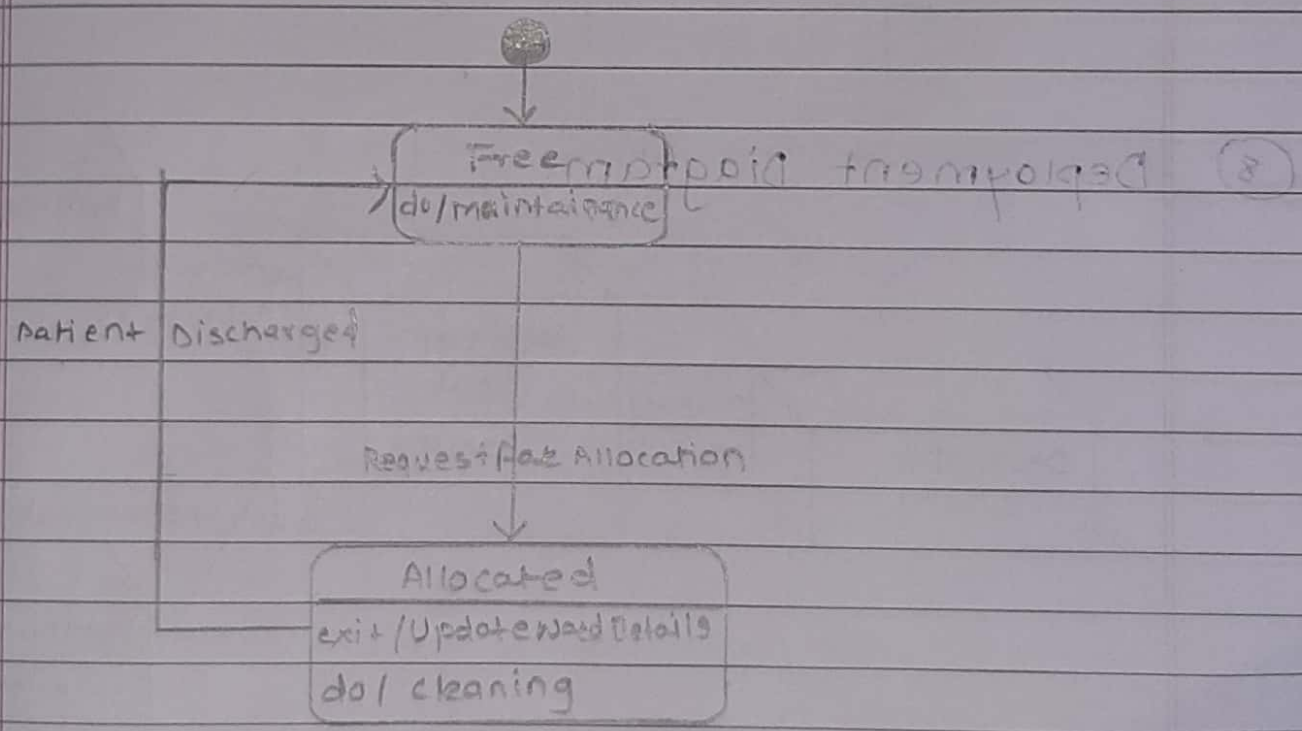 Free
do/maintainance
8 Deployment Diagram
Patient Discharged
Request for Allocation
Allocated
exit/UpdateWardDetails
do/ cleaning